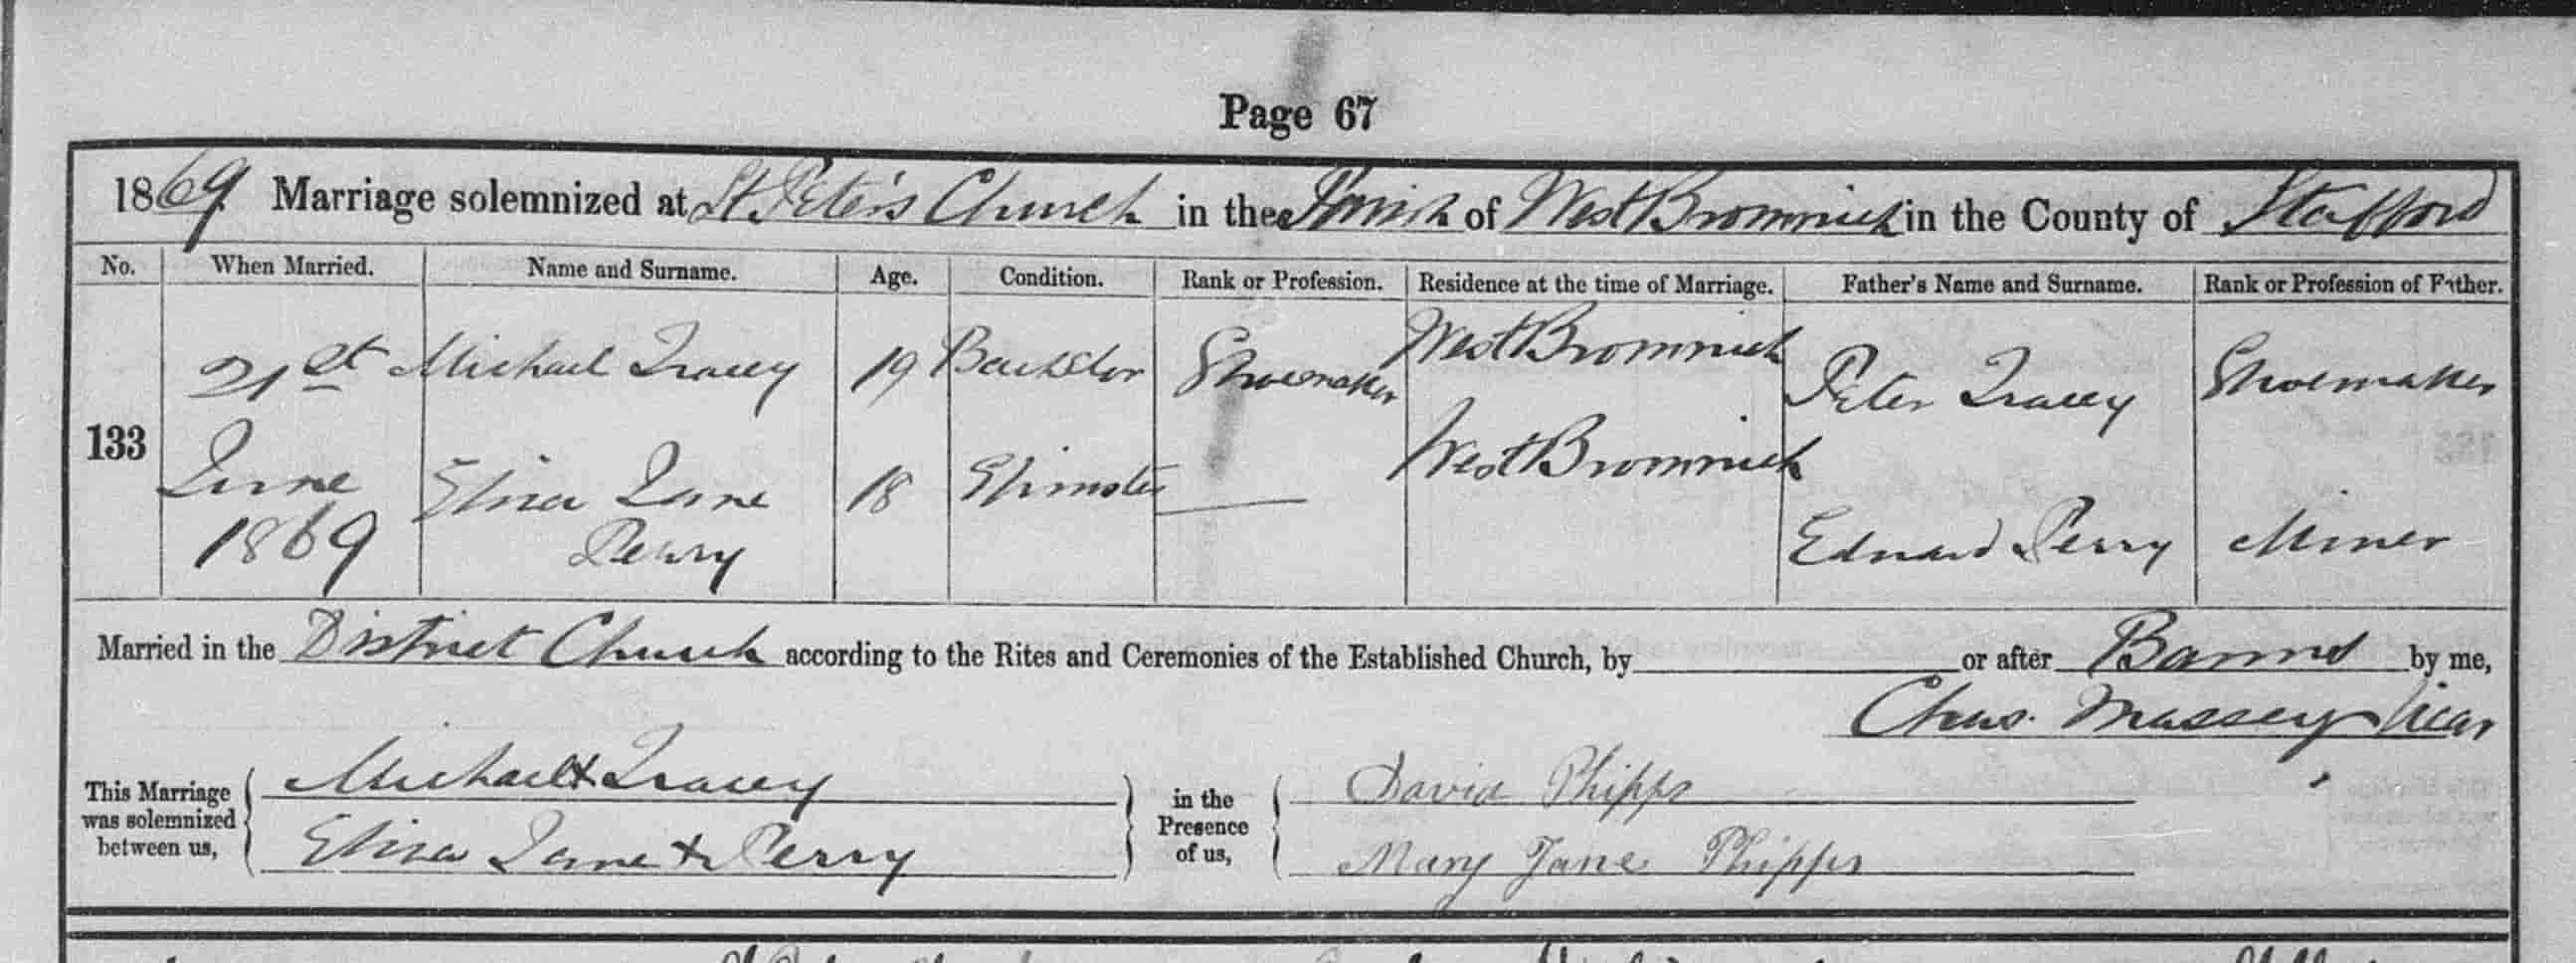 Page 67
1869. Marriage solemnized at St. Peter's Church in the Parish of West Bromwich in the County of Stafford
No. When Married. Name and Surname. Age. Condition. Rank or Profession. Residence at the time of Marriage. Father's Name and Surname. Rank or Profession of Father.
21st Michael Tracey 19 Bachelor Shoemaker West Bromwich Peter Tracey Shoemaker
133
June Eliza Jane 18 Spinster — West Bromwich
1869 Perry Edward Perry Miner
Married in the District Church according to the Rites and Ceremonies of the Established Church, by or after Banns by me,
Chas. Massey Vicar
This Marriage was solemnized between us, Michael x Tracey in the Presence of us, David Phipps
Eliza Jane x Perry Mary Jane Phipps